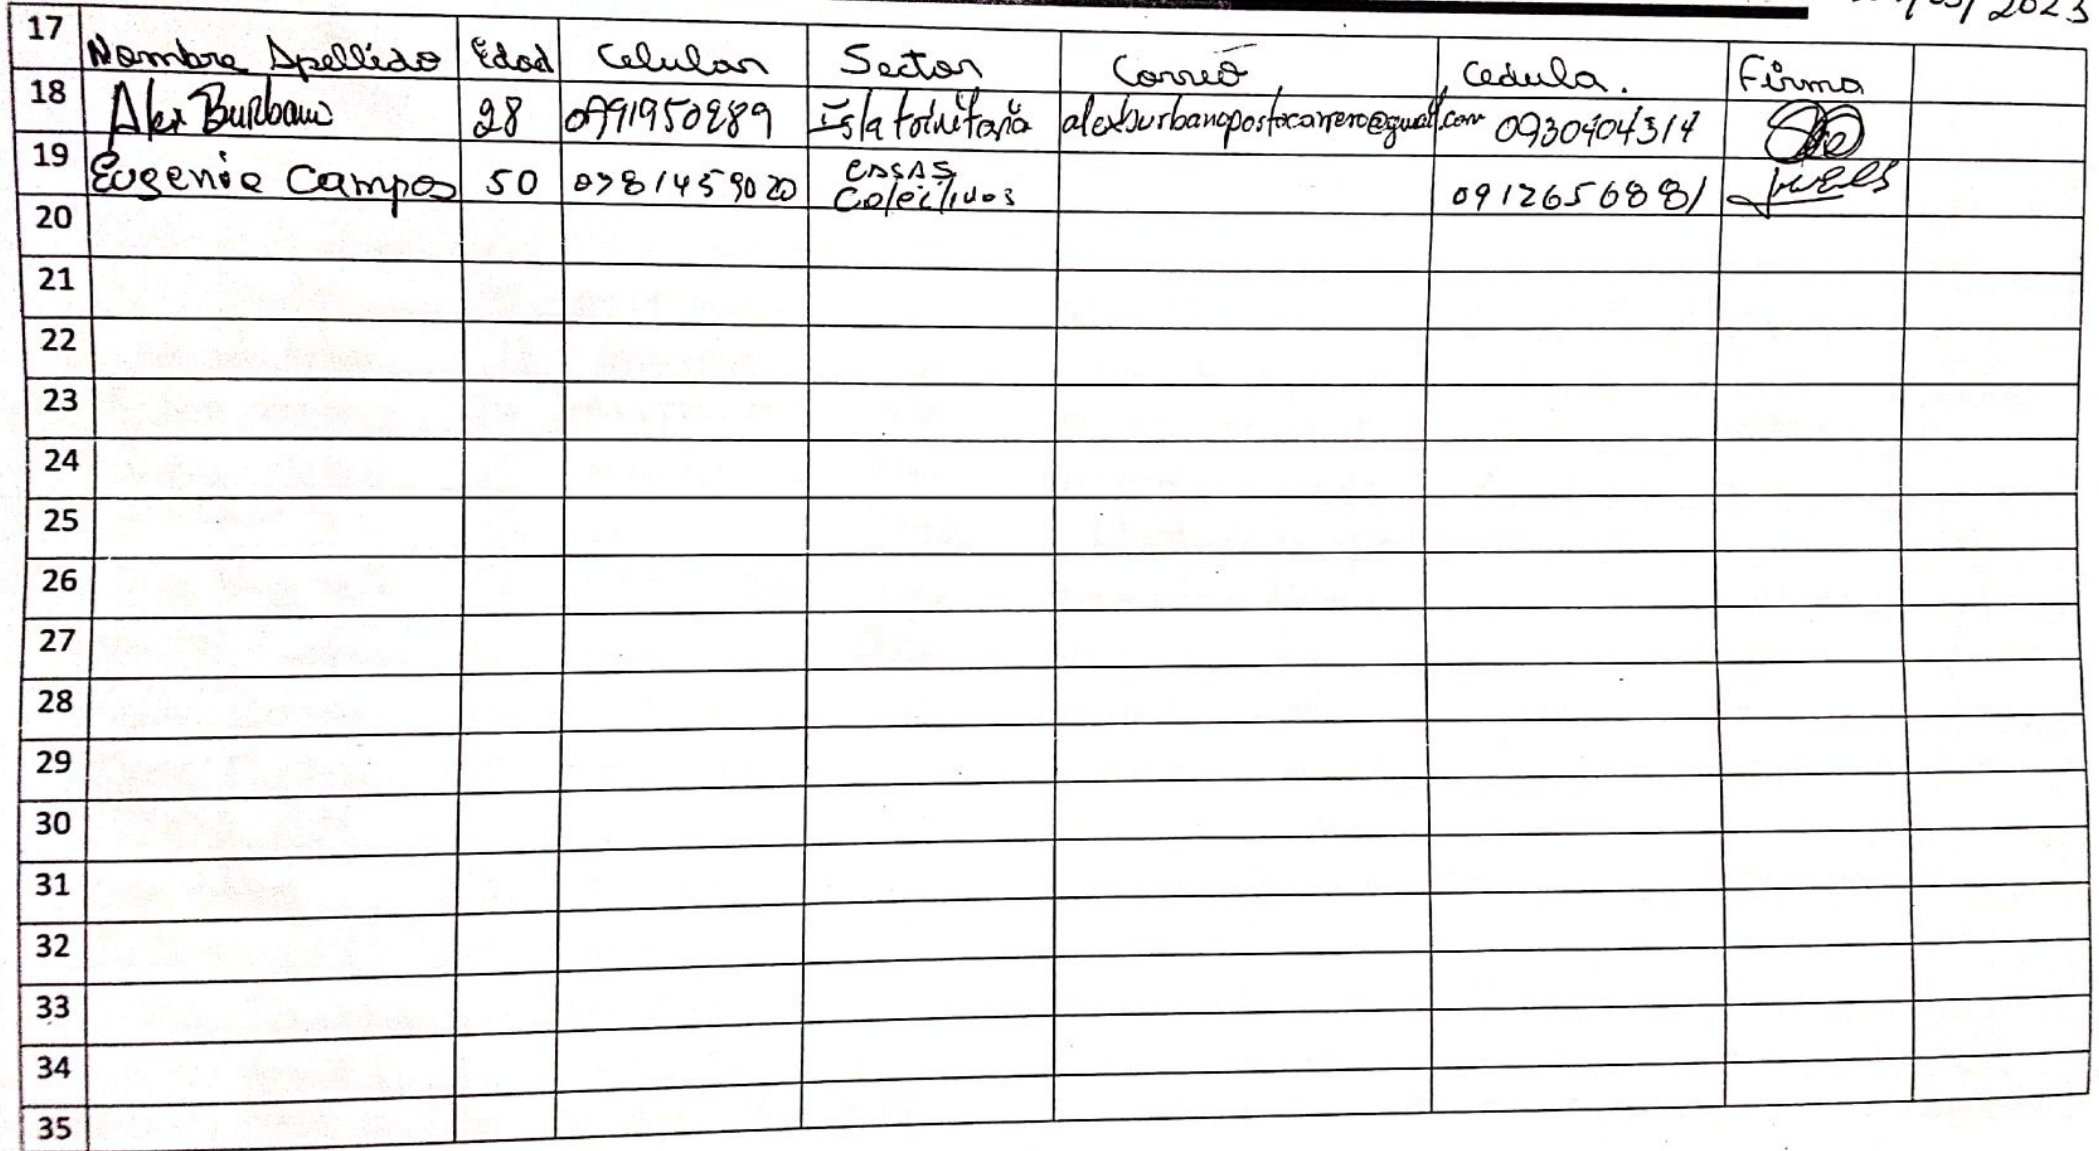 /05/2023
17 Nombre Apellido Edad Celular Sector Correo Cedula. Firma
18 Alex Burbano 28 0991950289 Isla trinitaria alexburbanoportocarrero@gmail.com 0930404314
19 Eugenia Campos 50 0981459020 CASAS Colectivas 0912656881
20
21
22
23
24
25
26
27
28
29
30
31
32
33
34
35